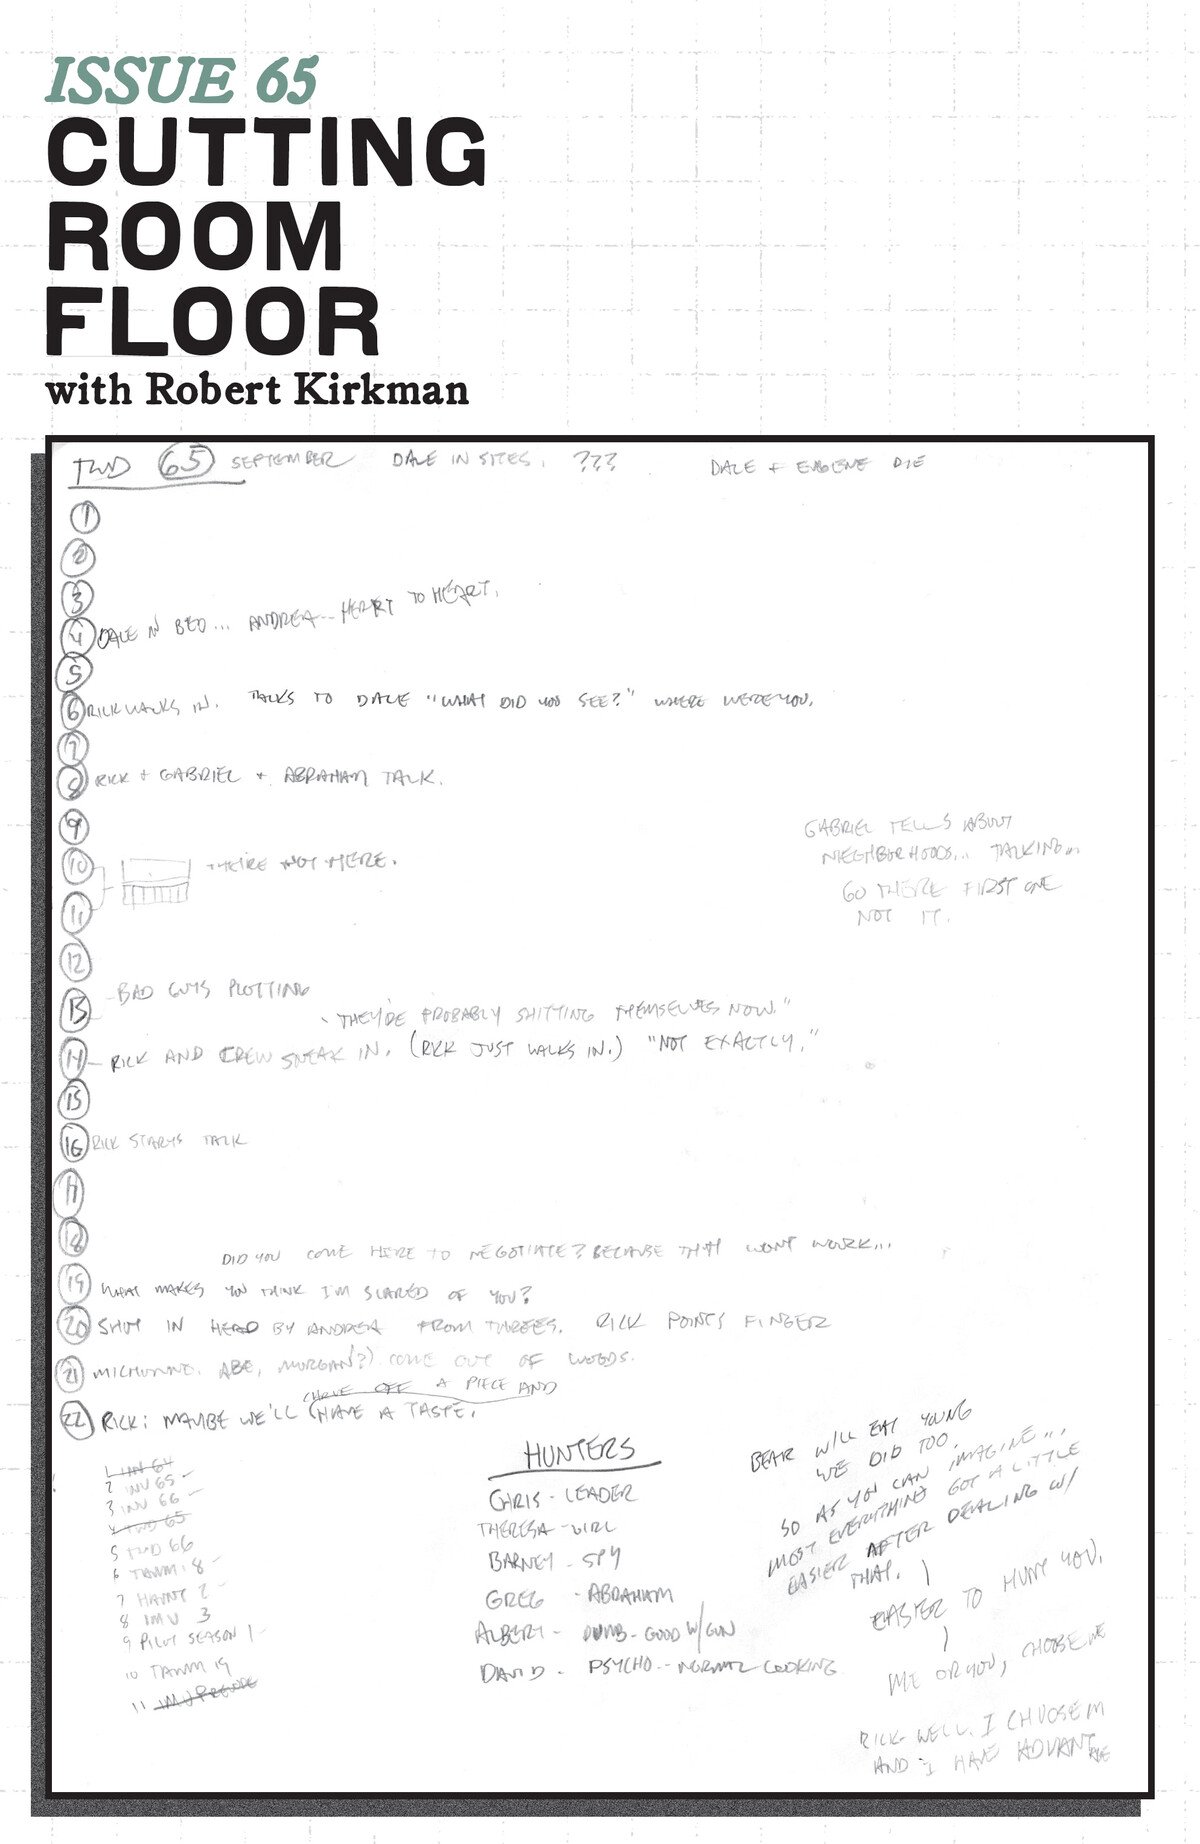 ISSUE 65
CUTTING
ROOM
FLOOR
with Robert Kirkman
TWD 65 SEPTEMBER DALE IN SITES. ??? DALE + EUGENE DIE
1
2
3
4 DALE IN BED... ANDREA-- HEART TO HEART.
5
6 RICK WALKS IN. TALKS TO DALE "WHAT DID YOU SEE?" WHERE WERE YOU.
7
8 RICK + GABRIEL + ABRAHAM TALK.
9
10 THEIRE NOT HERE.
11
GABRIEL TELLS ABOUT
NIEGHBORHOODS... TALKING...
GO THERE FIRST ONE
NOT IT.
12
- BAD GUYS PLOTTING
13 "THEY'RE PROBABLY SHITTING THEMSELVES NOW."
14 - RICK AND CREW SNEAK IN. (RICK JUST WALKS IN.) "NOT EXACTLY."
15
16 RICK STARTS TALK
17
18
DID YOU COME HERE TO NEGOTIATE? BECAUSE THAT WONT WORK...
19 WHAT MAKES YOU THINK I'M SCARED OF YOU?
20 SHOT IN HEAD BY ANDREA FROM TREES. RICK POINTS FINGER
21 MICHONNE, ABE, MORGAN?) COME OUT OF WOODS.
CARVE OFF A PIECE AND
22 RICK: MAYBE WE'LL HAVE A TASTE.
1 INV 64
2 INV 65 -
3 INV 66 -
4 TWD 65
5 TWD 66
6 TAWM 18 -
7 HAUNT 2 -
8 IMU 3
9 PILOT SEASON 1 -
10 TAWM 19
11 IMU PRELUDE
HUNTERS
CHRIS - LEADER
THERESA - GIRL
BARNEY - SPY
GREG - ABRAHAM
ALBERT - DUMB - GOOD W/ GUN
DAVID - PSYCHO -- NORMAL COOKING
BEAR WILL EAT YOUNG
WE DID TOO.
SO AS YOU CAN IMAGINE...
MOST EVERYTHING GOT A LITTLE
EASIER AFTER DEALING W/
THAT.
EASIER TO HUNT YOU.
ME OR YOU, CHOOSE ME
RICK- WELL. I CHOOSE M
AND I HAVE ADVANTAGE